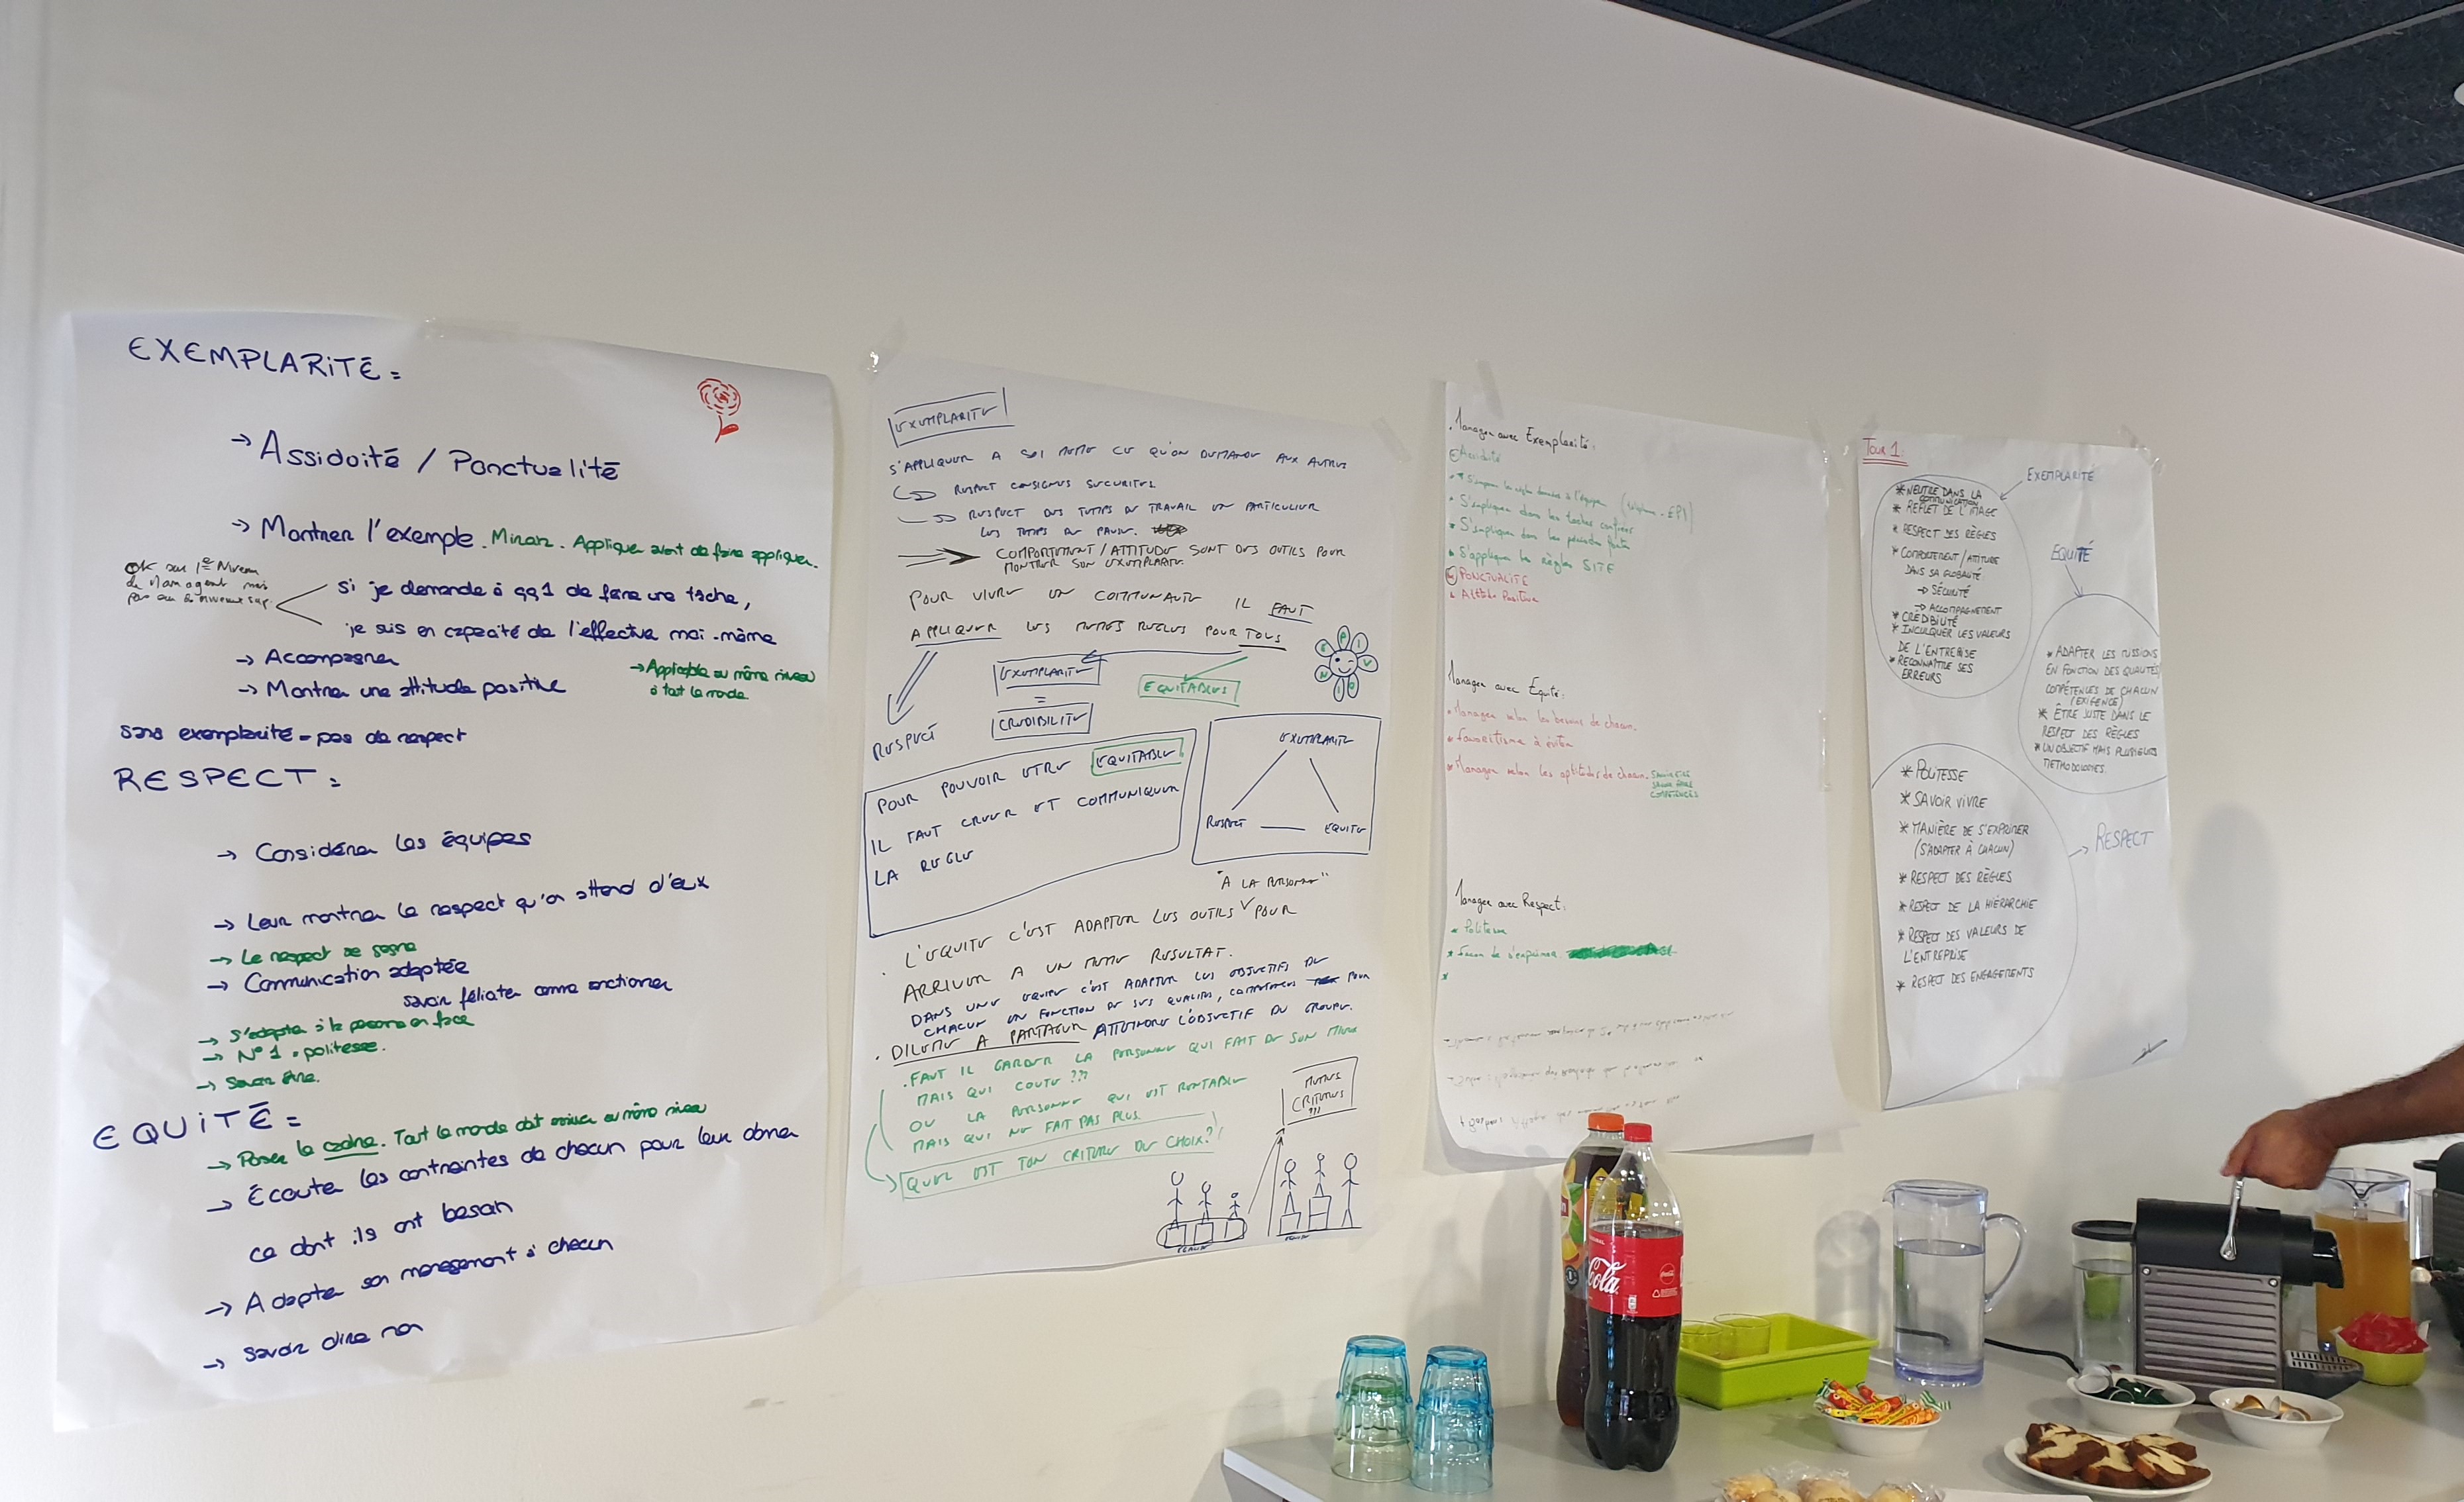 EXEMPLARITÉ =
→ Assiduité / Ponctualité
→ Montrer l'exemple. Miroir. Appliquer avant de faire appliquer.
OK sur 1er Niveau
de Management mais
pas au niveau sup.
si je demande à qq1 de faire une tâche,
je suis en capacité de l'effectuer moi-même
→ Accompagner
→ Montrer une attitude positive
→ Applicable au même niveau
à tout le monde
sans exemplarité = pas de respect
RESPECT =
→ Considérer les équipes
→ Leur montrer le respect qu'on attend d'eux
→ Le respect se gagne
→ Communication adaptée
savoir féliciter comme sanctionner
→ S'adapter à la personne en face
→ N°1 = politesse.
→ Savoir être.
EQUITÉ =
→ Poser le cadre. Tout le monde doit arriver au même niveau
→ Écouter les contraintes de chacun pour leur donner
ce dont ils ont besoin
→ Adapter son management à chacun
→ Savoir dire non
EXEMPLARITE
S'APPLIQUER A SOI MEME CE QU'ON DEMANDE AUX AUTRES
→ RESPECT CONSIGNES SECURITES
→ RESPECT DES TEMPS DE TRAVAIL EN PARTICULIER
LES TEMPS DE PAUSE.
COMPORTEMENT / ATTITUDE SONT DES OUTILS POUR
MONTRER SON EXEMPLARITE
POUR VIVRE EN COMMUNAUTE IL FAUT
APPLIQUER LES MEMES REGLES POUR TOUS
RESPECT
EXEMPLARITE
=
CREDIBILITE
EQUITABLES
POUR POUVOIR ETRE EQUITABLE
IL FAUT CREER ET COMMUNIQUER
LA REGLE
EXEMPLARITE
RESPECT
EQUITE
"A LA PERSONNE"
. L'EQUITE C'EST ADAPTER LES OUTILS POUR
ARRIVER A UN MEME RESULTAT.
DANS UNE EQUIPE C'EST ADAPTER LES OBJECTIFS DE
CHACUN EN FONCTION DE SES QUALITES, COMPETENCES POUR
ATTEINDRE L'OBJECTIF DU GROUPE.
. DILEME A PARTAGER
. FAUT IL GARDER LA PERSONNE QUI FAIT DE SON MIEUX
MAIS QUI COUTE ???
OU LA PERSONNE QUI EST RENTABLE
MAIS QUI NE FAIT PAS PLUS
QUEL EST TON CRITERE DE CHOIX ?!
MEMES
CRITERES
???
Manager avec Exemplarité :
Assiduité
S'imposer la règle donnée à l'équipe (téléphone - EPI)
* S'impliquer dans les taches confiées
* S'impliquer dans les
* S'appliquer les règles SITE
PONCTUALITE
Attitude Positive
Manager avec Equité :
Manager selon les besoins de chacun.
Favoritisme à éviter
* Manager selon les aptitudes de chacun.
SAVOIR ETRE
SAVOIR FAIRE
COMPETENCES
Manager avec Respect :
Politesse
* Façon de s'exprimer
*
TOUR 1 :
EXEMPLARITÉ
* NEUTRE DANS LA
COMMUNICATION
* REFLET DE L'IMAGE
* RESPECT DES RÈGLES
* COMPORTEMENT / ATTITUDE
DANS SA GLOBALITÉ
→ SÉCURITÉ
→ ACCOMPAGNEMENT
* CRÉDIBILITÉ
* INCULQUER LES VALEURS
DE L'ENTREPRISE
* RECONNAÎTRE SES
ERREURS
EQUITÉ
* ADAPTER LES MISSIONS
EN FONCTION DES QUALITÉS/
COMPÉTENCES DE CHACUN
(EXIGENCE)
* ÊTRE JUSTE DANS LE
RESPECT DES RÈGLES
* UN OBJECTIF MAIS PLUSIEURS
METHODOLOGIES.
RESPECT
* POLITESSE
* SAVOIR VIVRE
* MANIÈRE DE S'EXPRIMER
(S'ADAPTER À CHACUN)
* RESPECT DES RÈGLES
* RESPECT DE LA HIÉRARCHIE
* RESPECT DES VALEURS DE
L'ENTREPRISE
* RESPECT DES ENGAGEMENTS
Cola